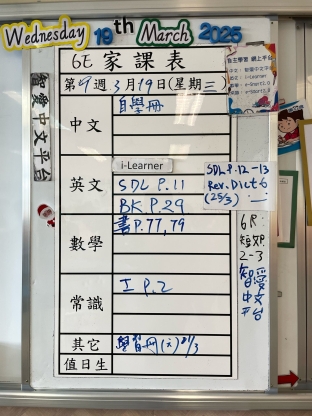 Wednesday 19th March 2025
6E 家課表
第 19 週 3 月 19 日(星期三)
自主學習 網上平台
智愛中文平台
中文
自學冊
英文
i-Learner
SDL P.11
BK P.29
SDL P.12-13
Rev. Dict 6
(25/3)
數學
書 P.77,79
6P:
短架
2-3
智愛
中文
平台
常識
工 P.2
其它
學習冊(文)21/3
值日生